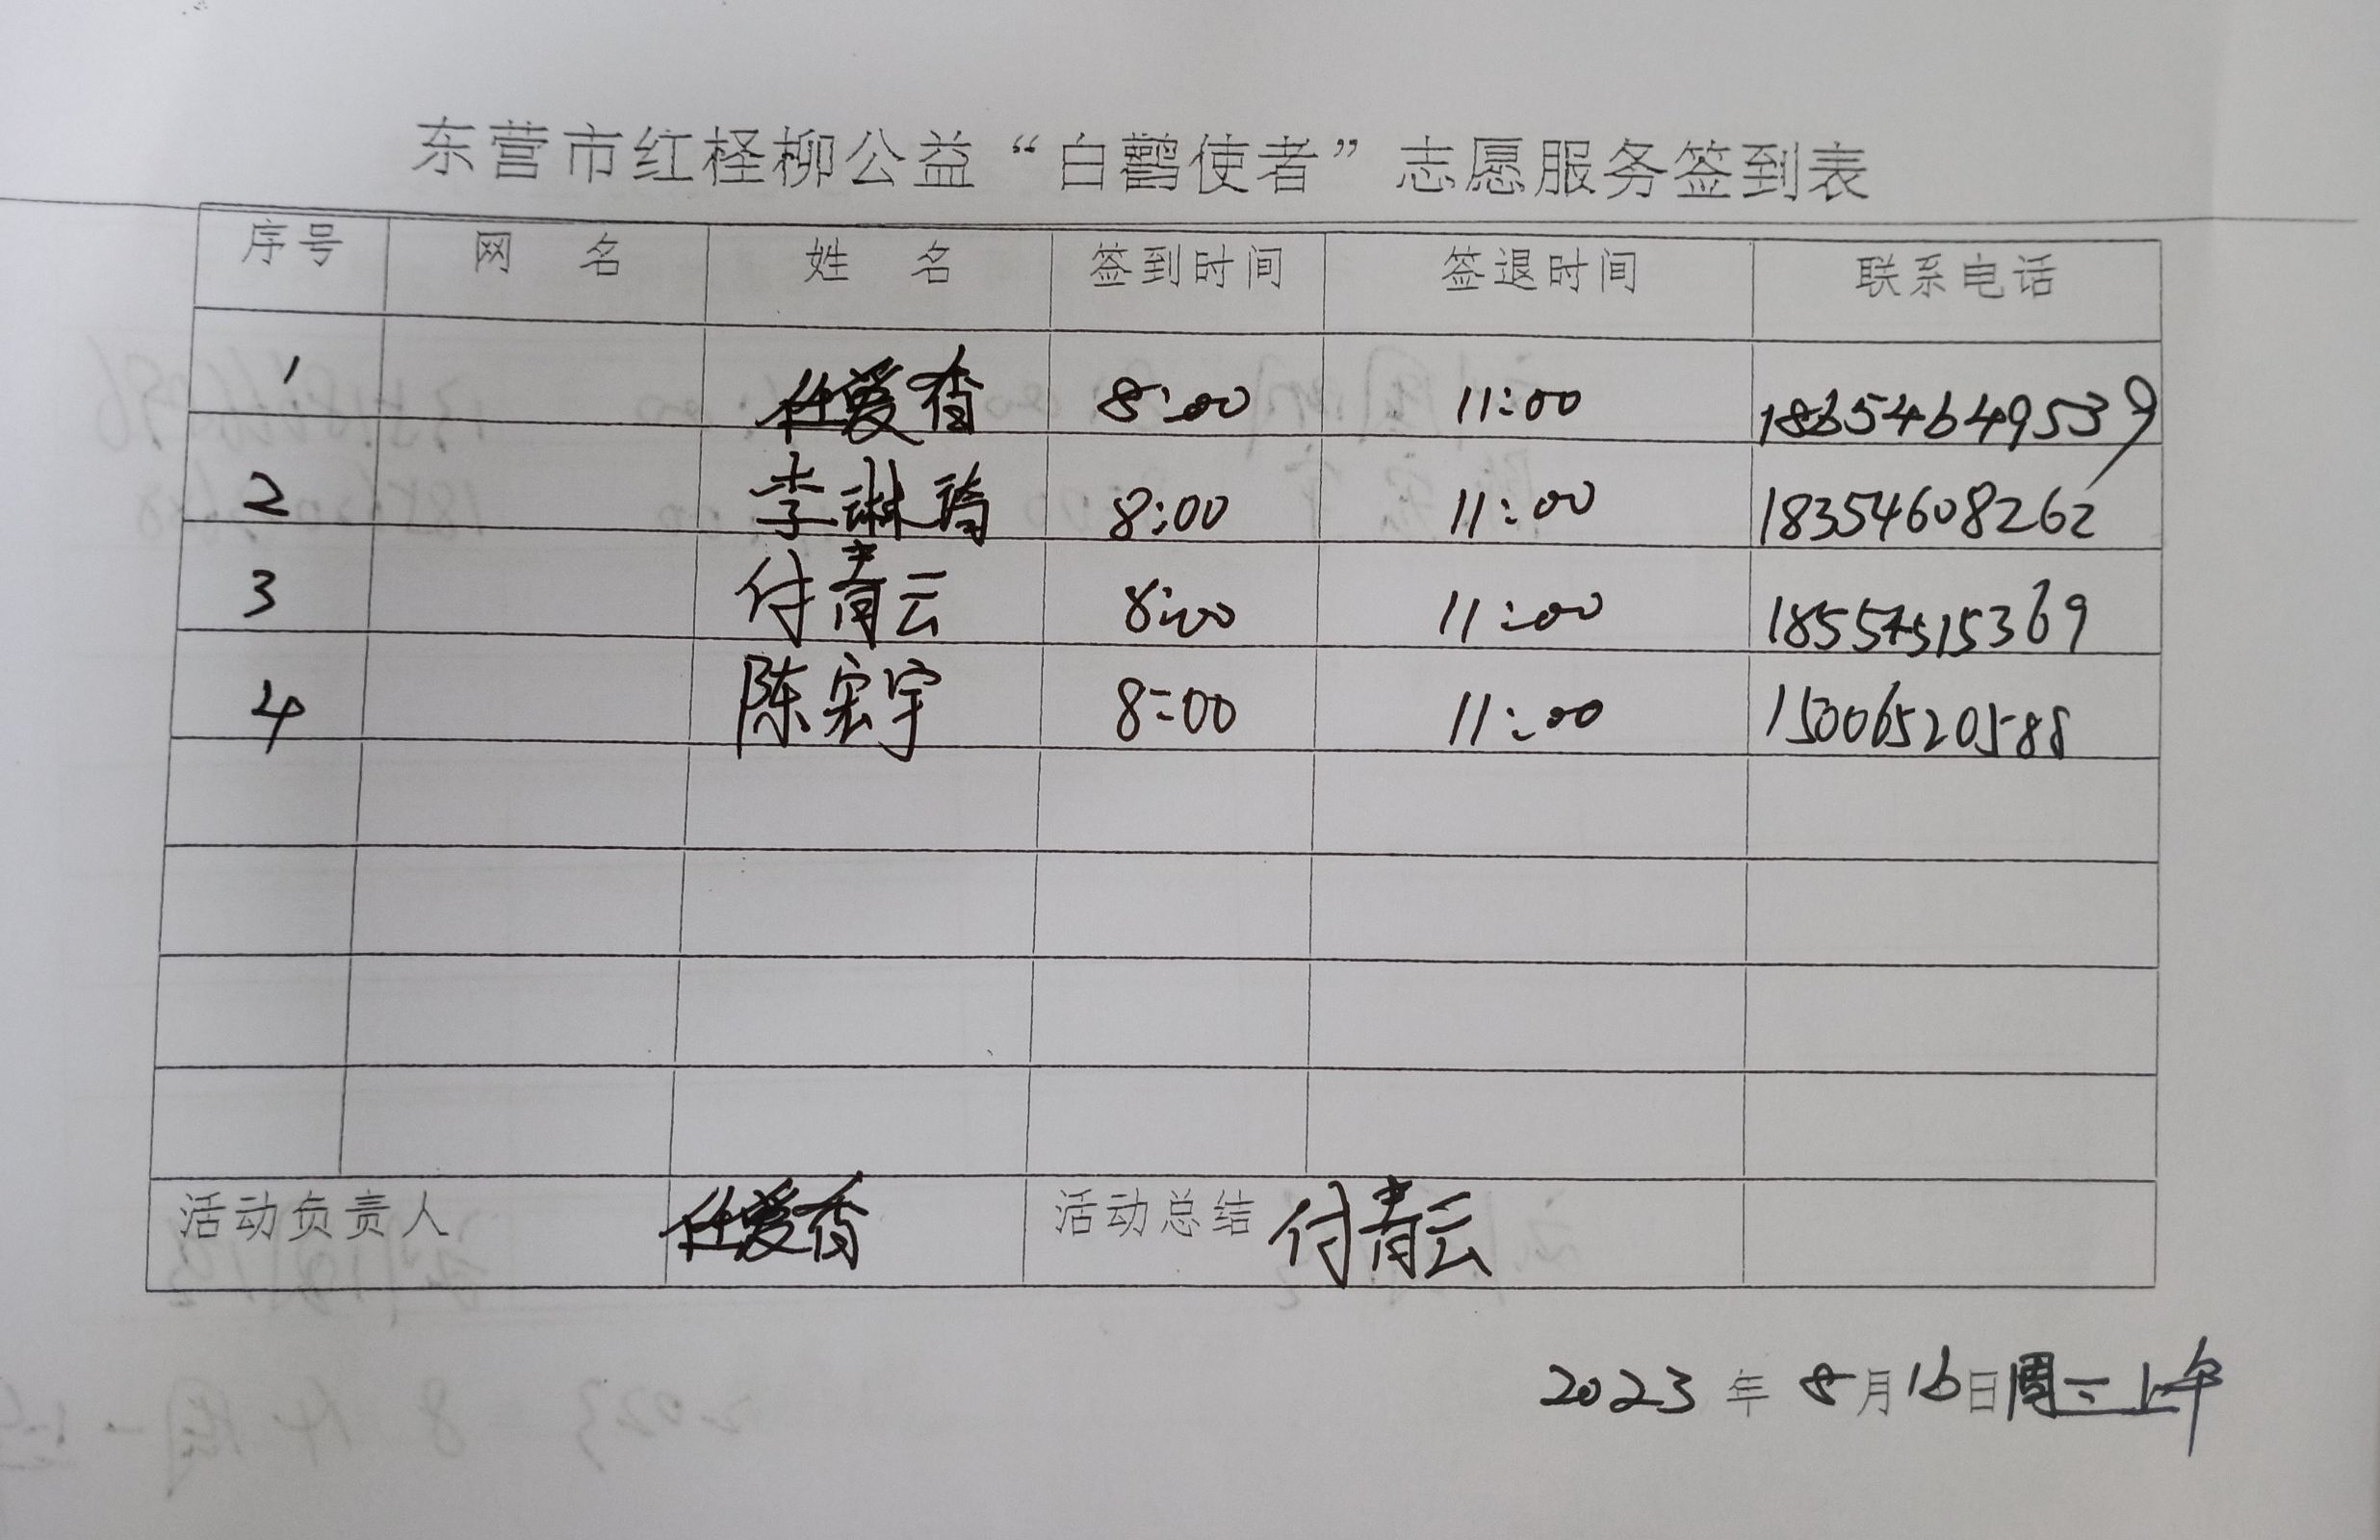 东营市红柽柳公益“白鹳使者”志愿服务签到表
序号 网 名 姓 名 签到时间 签退时间 联系电话
1 任爱香 8:00 11:00 18654649539
2 李琳琦 8:00 11:00 18354608262
3 付青云 8:00 11:00 18554515369
4 陈宏宇 8:00 11:00 15006520588
活动负责人 任爱香 活动总结 付青云
2023 年 8月16日周三上午